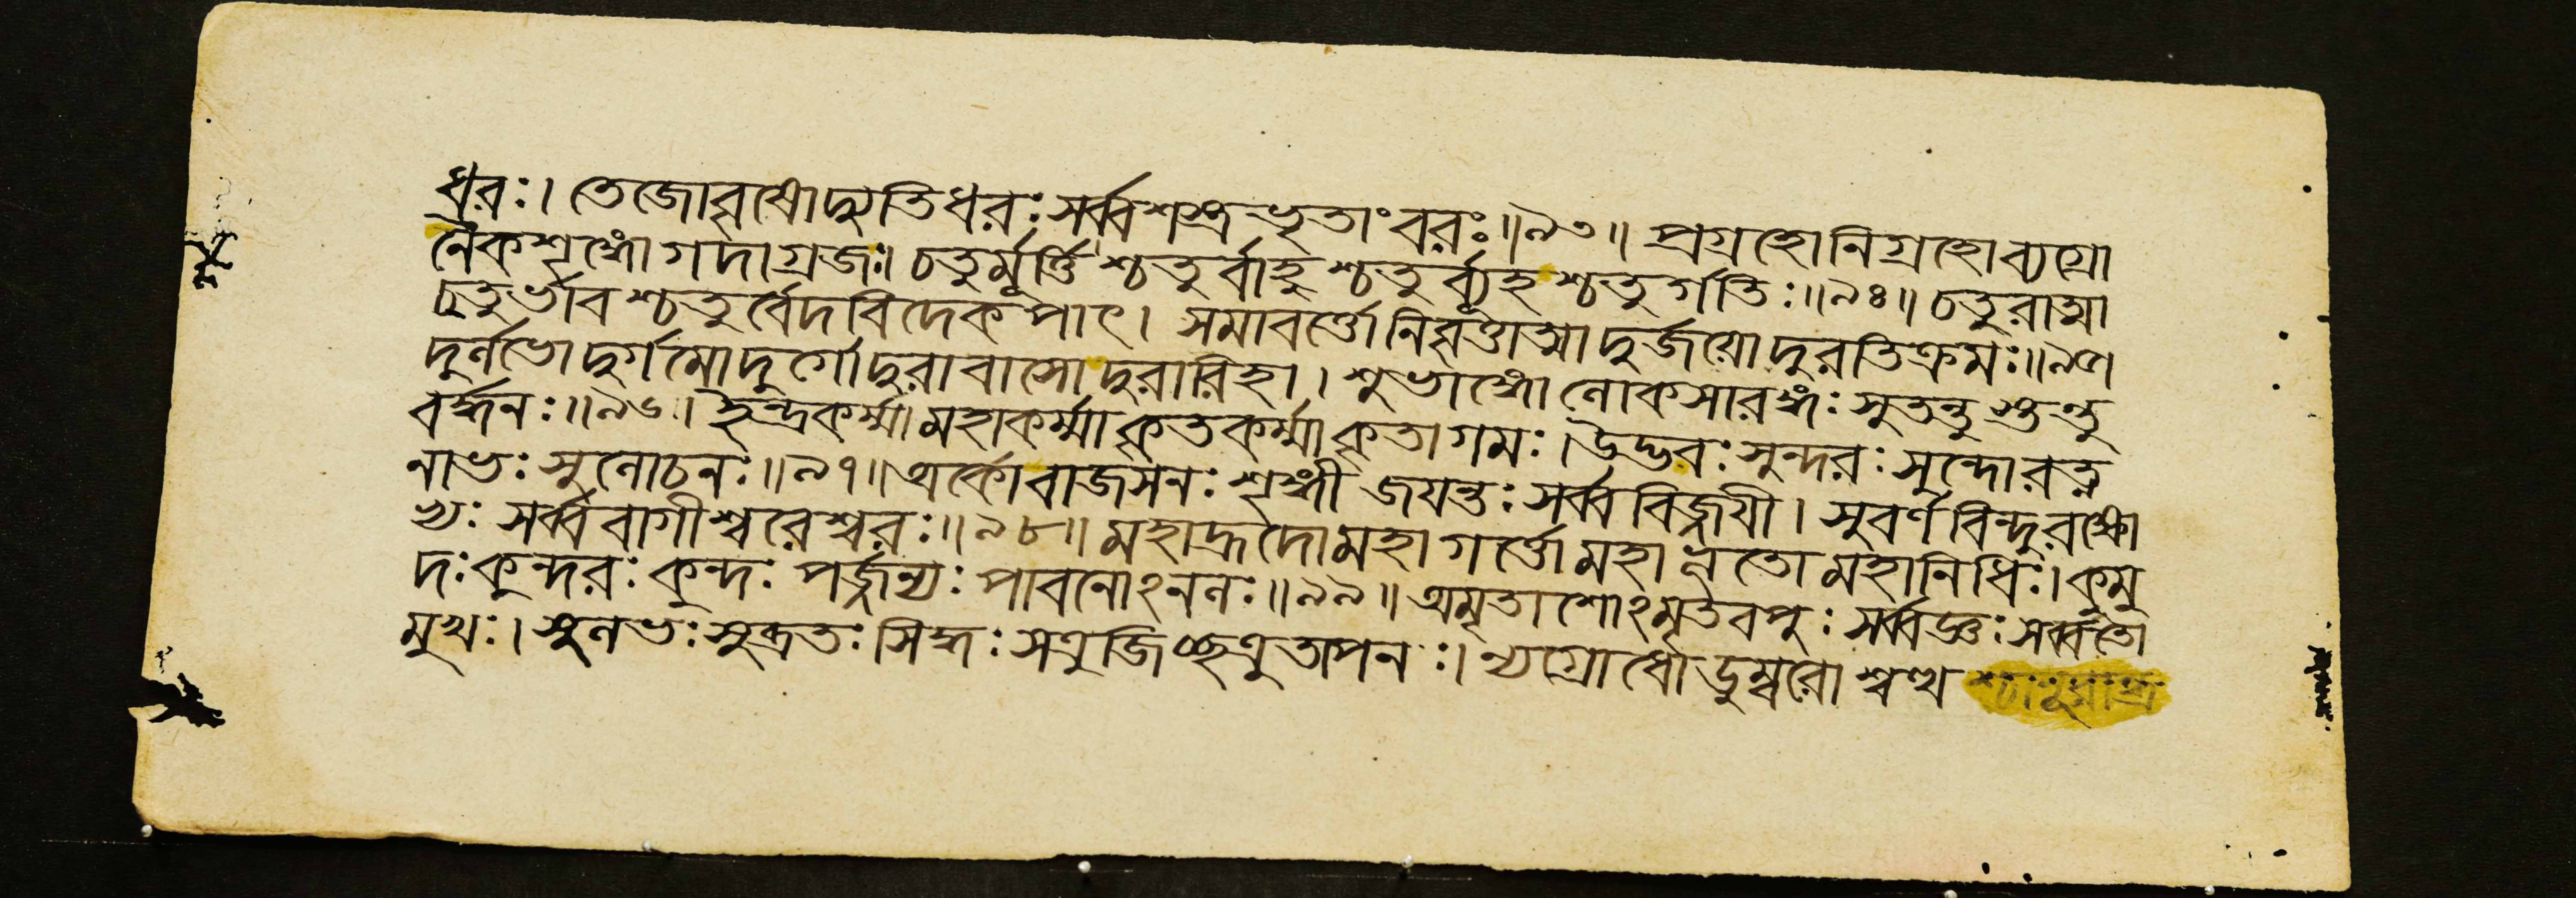 ধরঃ। তেজোবৃষোদ্যুতিধরঃ সর্ব্বশস্ত্রভৃতাংবরঃ॥৯৩॥ প্রগ্রহোনিগ্রহোব্যগ্রো
নৈকশৃঙ্গোগদাগ্রজঃ। চতুর্মূর্ত্তিশ্চতুর্বাহুশ্চতুর্ব্যূহশ্চতুর্গতিঃ॥৯৪॥ চতুরাত্মা
চতুর্ভাবশ্চতুর্বেদবিদেকপাৎ। সমাবর্ত্তোনিবৃত্তাত্মাদুর্জয়োদুরতিক্রমঃ॥৯৫॥
দুর্লভোদুর্গমোদুর্গোদুরাবাসোদুরারিহা। শুভাঙ্গোলোকসারঙ্গঃ সুতন্তুস্তন্তু
বর্দ্ধনঃ॥৯৬॥ ইন্দ্রকর্ম্মামহাকর্ম্মাকৃতকর্ম্মাকৃতাগমঃ। উদ্ভবঃ সুন্দরঃ সুন্দোরত্ন
নাভঃ সুলোচনঃ॥৯৭॥ অর্কোবাজসনঃ শৃঙ্গী জয়ন্তঃ সর্ব্ববিজ্জয়ী। সুবর্ণবিন্দুরক্ষো
ভ্যঃ সর্ব্ববাগীশ্বরেশ্বরঃ॥৯৮॥ মহাহ্রদোমহাগর্ত্তোমহাভূতোমহানিধিঃ। কুমু
দঃ কুন্দরঃ কুন্দঃ পর্জ্জন্যঃ পাবনোঽনলঃ॥৯৯॥ অমৃতাশোঽমৃতবপুঃ সর্ব্বজ্ঞঃ সর্ব্বতো
মুখঃ। সুলভঃ সুব্রতঃ সিদ্ধঃ সত্রুজিচ্ছত্রুতাপনঃ। ন্যগ্রোধোডুম্বরোশ্বত্থশ্চাণূরান্ধ্র